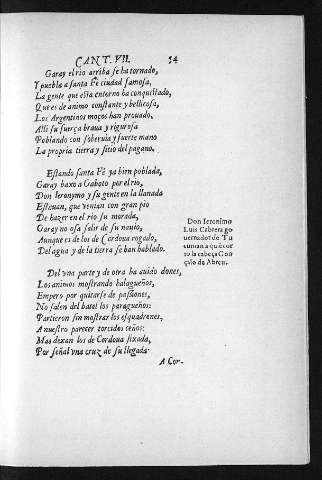 CANT. VII. 54
Garay el rio arriba ſe ha tornado,
Y puebla a ſanta Fé ciudad famoſa,
La gente que eſta entorno ha conquiſtado,
Que es de animo conſtante y bellicoſa,
Los Argentinos moços han prouado,
Alli ſu fuerça braua y riguroſa
Poblando con ſoberuia y fuerte mano
La propria tierra y ſitio del pagano.
Eſtando ſanta Fé ya bien poblada,
Garay baxo a Gaboto por el rio,
Don Ieronymo y ſu gente en la llanada
Eſtauan, que venian con gran pio
De hazer en el rio ſu morada,
Garay no oſa ſalir de ſu nauio,
Aunque es de los de Cordoua rogado,
Del agua y de la tierra ſe han hablado.
Don Ieronimo
Luis Cabrera go
uernador de Tu
cuman a quiē cor
to la cabeça Gon
çalo de Abreu.
Del vna parte y de otra ha auido dones,
Los animos moſtrando halagueños,
Empero por quitarſe de paſsiones,
No ſalen del batel los paragueños:
Partieron ſin moſtrar los eſquadrones,
A nueſtro parecer torcidos ceños:
Mas dexan los de Cordoua fixada,
Por ſeñal vna cruz de ſu llegada.
A Cor-